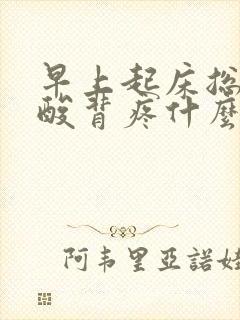 早上起床總
酸背疼什麼
阿韦里亞諾娃